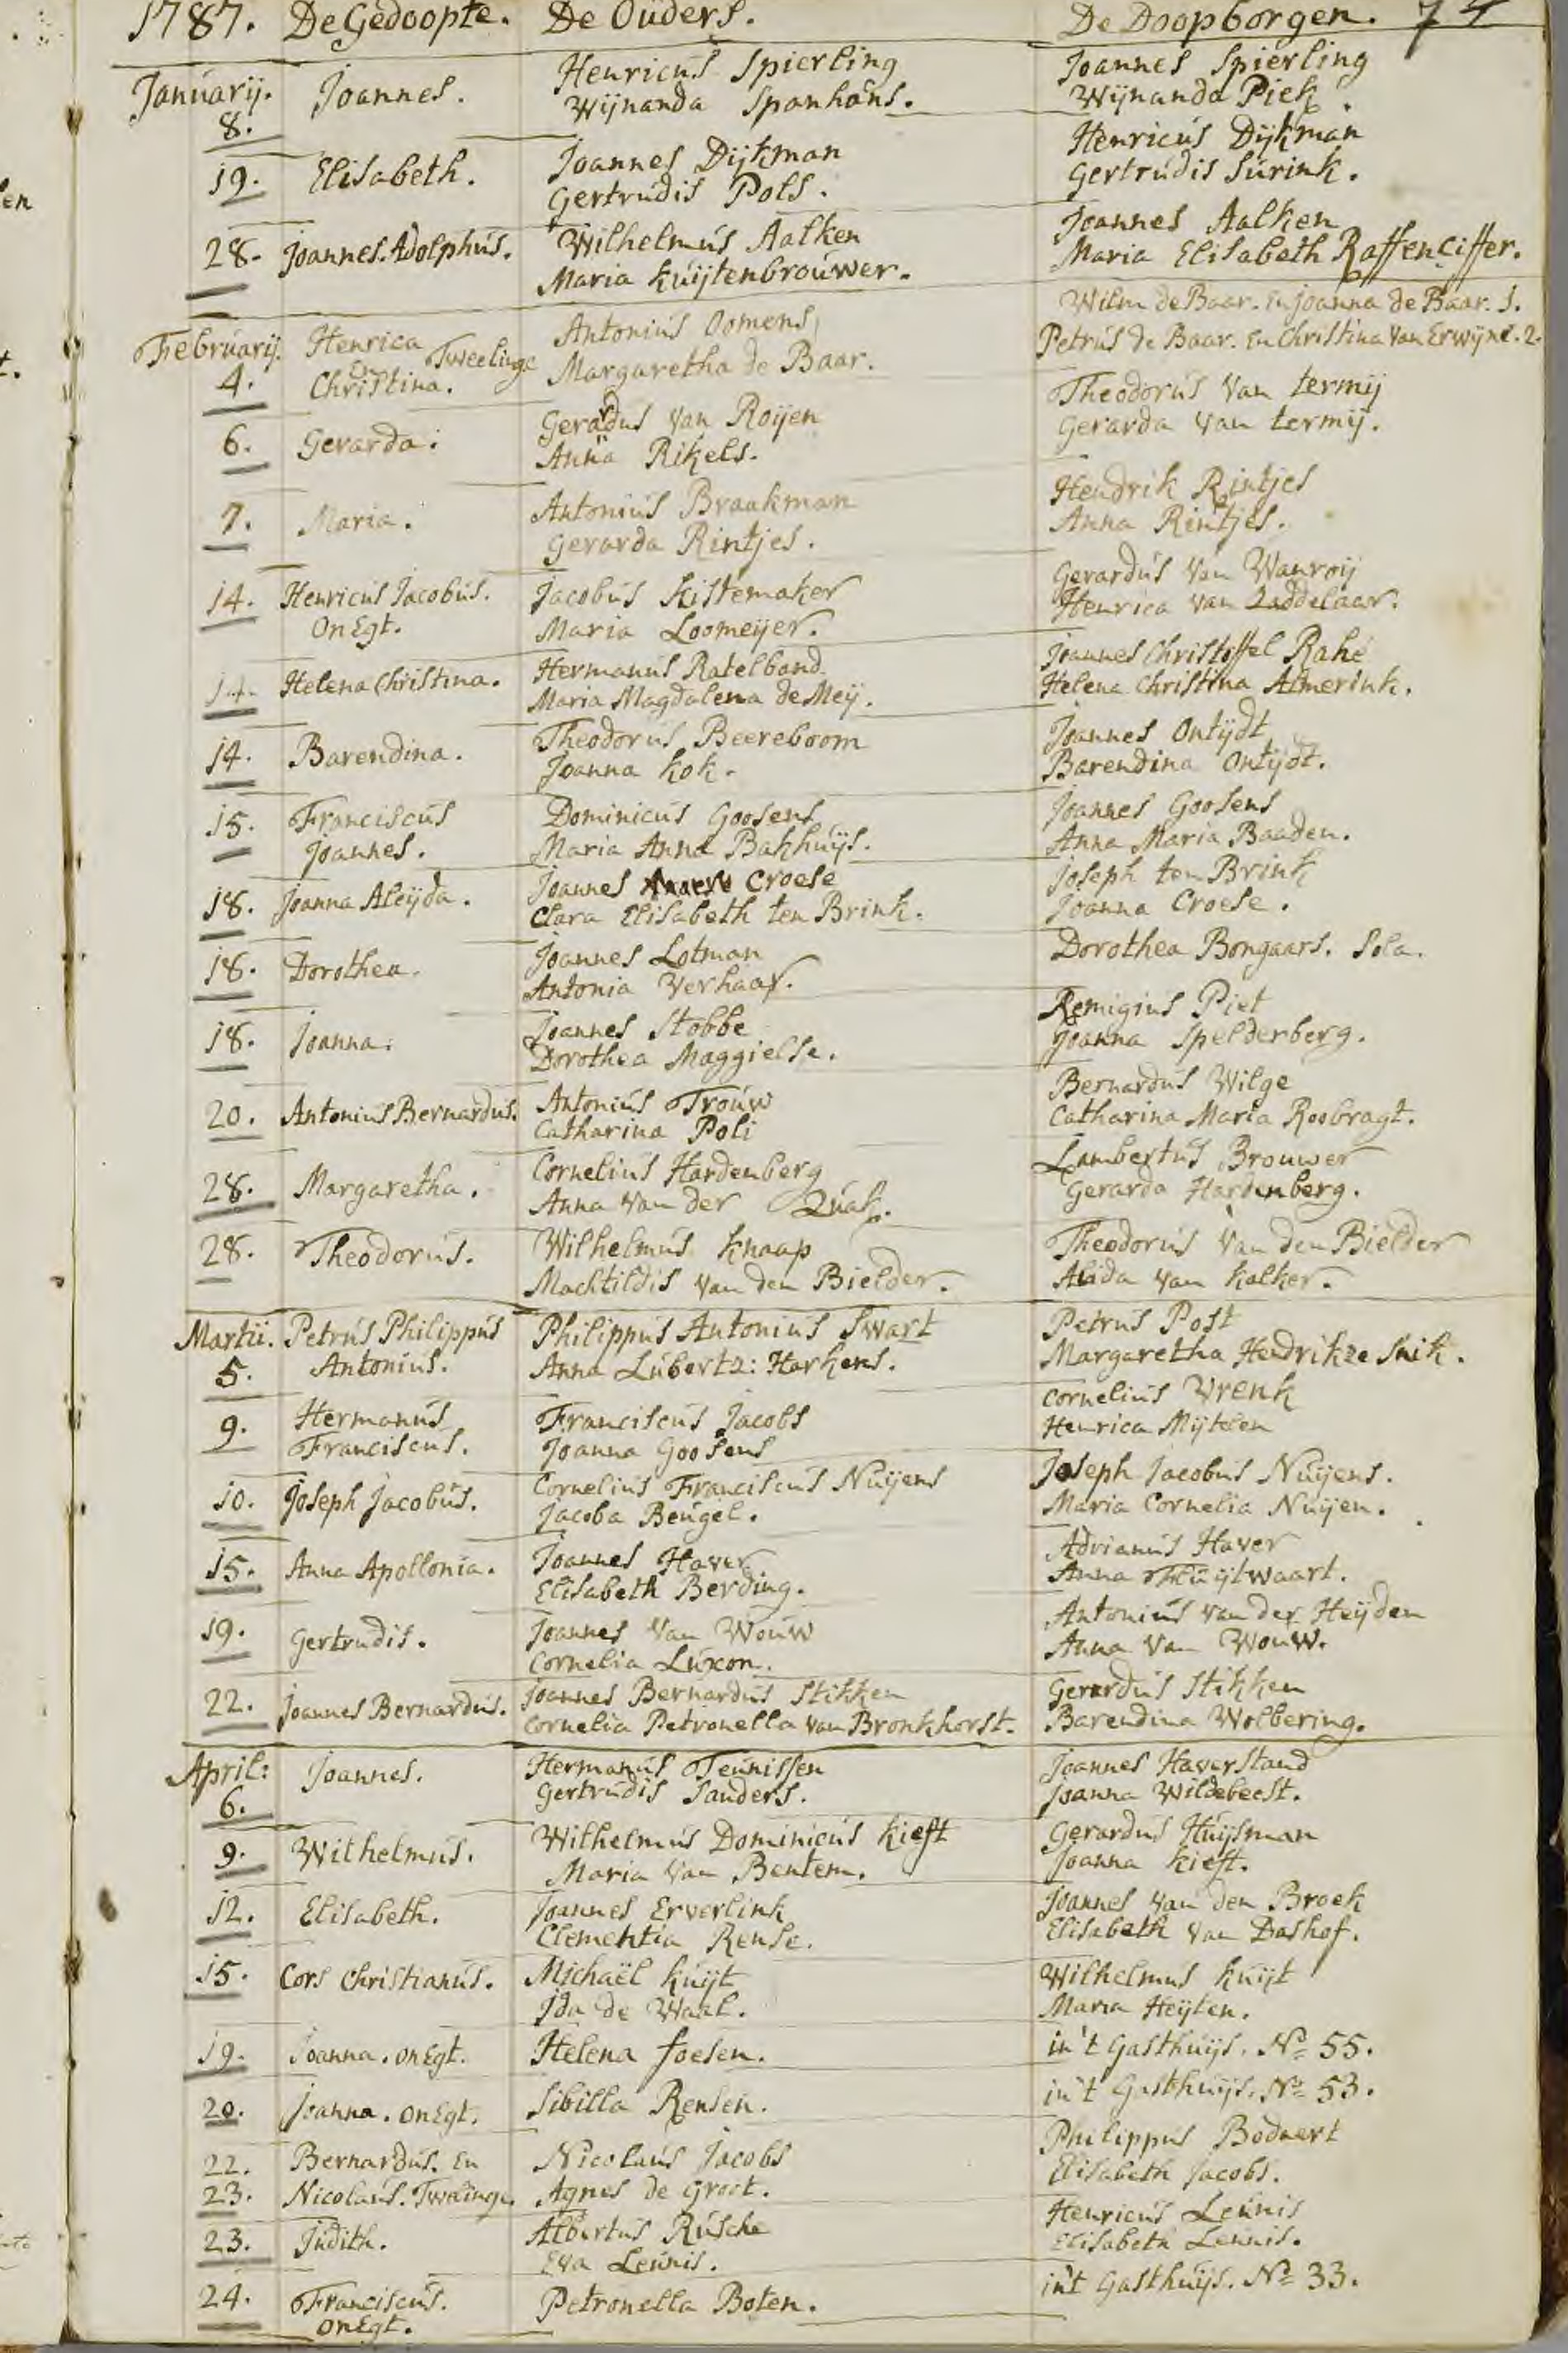 1787. De Gedoopte. De Ouders. De Doopborgen. 74
Januarij. 8. Joannes. Henricus Spierling Joannes Spierling
Wijnanda Spanhans. Wijnanda Piek.
19. Elisabeth. Joannes Dijkman Henricus Dijkman
Gertrudis Pols. Gertrudis Surink.
28. Joannes. Adolphus. Wilhelmus Aalken Joannes Aalken
Maria Kuijtenbrouwer. Maria Elisabeth Raffenciffer.
Februarij. 4. Henrica en Christina. Tweelinge Antonius Oomens Wilm de Baar. En Joanna de Baar. 1.
Margaretha de Baar. Petrus de Baar. En Christina van Erwijne. 2.
6. Gerarda. Gerardus van Roijen Theodorus van termij
Anna Rikels. Gerarda van termij.
7. Maria. Antonius Braakman Hendrik Rintjes
Gerarda Rintjes. Anna Rintjes.
14. Henricus Jacobus. Jacobus Kistemaker Gerardus van Wanroij
OnEgt. Maria Loomeijer. Henrica van Zaddelaar.
14. Helena Christina. Hermanus Ratelband Joannes Christoffel Rahé
Maria Magdalena de Meij. Helena Christina Almerink.
14. Barendina. Theodorus Beereboom Joannes Ontijdt
Joanna Kok. Barendina Ontijdt.
15. Franciscus Dominicus Goosens Joannes Goosens
Joannes. Maria Anna Bakhuijs. Anna Maria Baaden.
18. Joanna Aleijda. Joannes Croese Joseph ten Brink
Clara Elisabeth ten Brink. Joanna Croese.
18. Dorothea. Joannes Lotman Dorothea Bongaars. Sola.
Antonia Verhaar.
18. Joanna. Joannes Stobbe Remigius Piet
Dorothea Maggielse. Joanna Spelderberg.
20. Antonius Bernardus. Antonius Trouw Bernardus Wilge
Catharina Poli Catharina Maria Roobragt.
28. Margaretha. Cornelius Hardenberg Lambertus Brouwer
Anna van der Quak. Gerarda Hardenberg.
28. Theodorus. Wilhelmus Knaap Theodorus van den Bielder
Machtildis van den Bielder. Alida van Kalker.
Martii. 5. Petrus Philippus Philippus Antonius Swart Petrus Post
Antonius. Anna Lubertz: Harkens. Margaretha Hendrikze Snik.
9. Hermanus Franciscus Jacobs Cornelius Vrenk
Franciscus. Joanna Goosens Henrica Mijtelen
10. Joseph Jacobus. Cornelius Franciscus Nuijens Joseph Jacobus Nuijens.
Jacoba Beugel. Maria Cornelia Nuijen.
15. Anna Apollonia. Joannes Haver Adrianus Haver
Elisabeth Berding. Anna Fluijtwaart.
19. Gertrudis. Joannes van Wouw Antonius van der Heijden
Cornelia Luxon. Anna van Wouw.
22. Joannes Bernardus. Joannes Bernardus Stikken Gerardus Stikken
Cornelia Petronella van Bronkhorst. Barendina Wolbering.
April: 6. Joannes. Hermanus Teunissen Joannes Haverstand
Gertrudis Sanders. Joanna Wildebeest.
9. Wilhelmus. Wilhelmus Dominicus Kieft Gerardus Huijsman
Maria van Bentem. Joanna Kieft.
12. Elisabeth. Joannes Erverlink Joannes van den Broek
Clementia Rense. Elisabeth van Dashof.
15. Cors Christianus. Michaël Kuijt Wilhelmus Kuijt
Ida de Waal. Maria Heijten.
19. Joanna. OnEgt. Helena Joesen. in't Gasthuijs. No 55.
20. Joanna. OnEgt. Sibilla Rensen. in't Gasthuijs. No 53.
22. Bernardus. En Nicolaus Jacobs Philippus Bodaert
23. Nicolaus. Tweelinge. Agnes de Groot. Elisabeth Jacobs.
23. Judith. Albertus Rusche Henricus Leunis
Eva Leunis. Elisabeth Leunis.
24. Franciscus. Petronella Boten. in't Gasthuijs. No 33.
OnEgt.